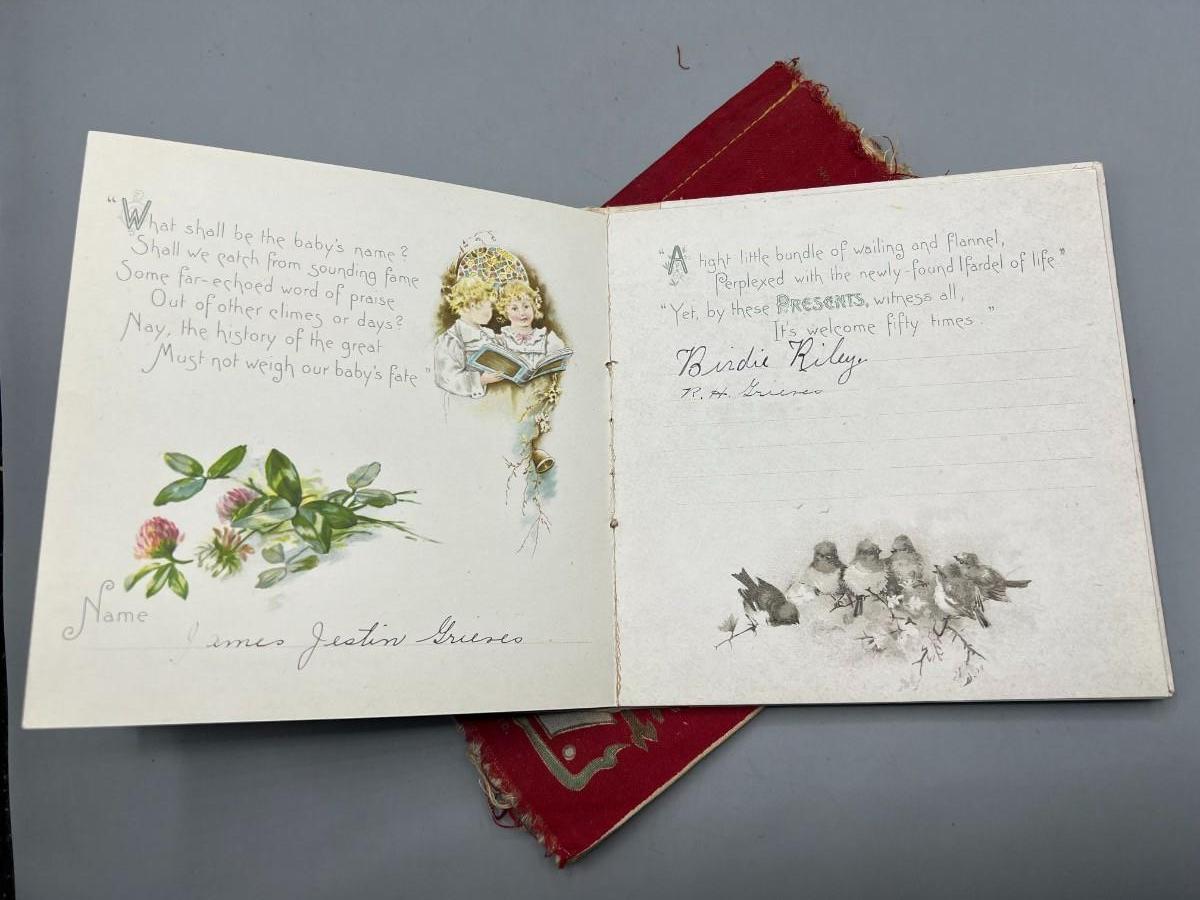 "What shall be the baby's name?
Shall we catch from sounding fame
Some far-echoed word of praise
Out of other climes or days?
Nay, the history of the great
Must not weigh our baby's fate"
Name
James Jestin Grieves
"A tight little bundle of wailing and flannel,
Perplexed with the newly-found fardel of life"
"Yet, by these PRESENTS, witness all,
It's welcome fifty times."
Birdie Riley
R. H. Grieves